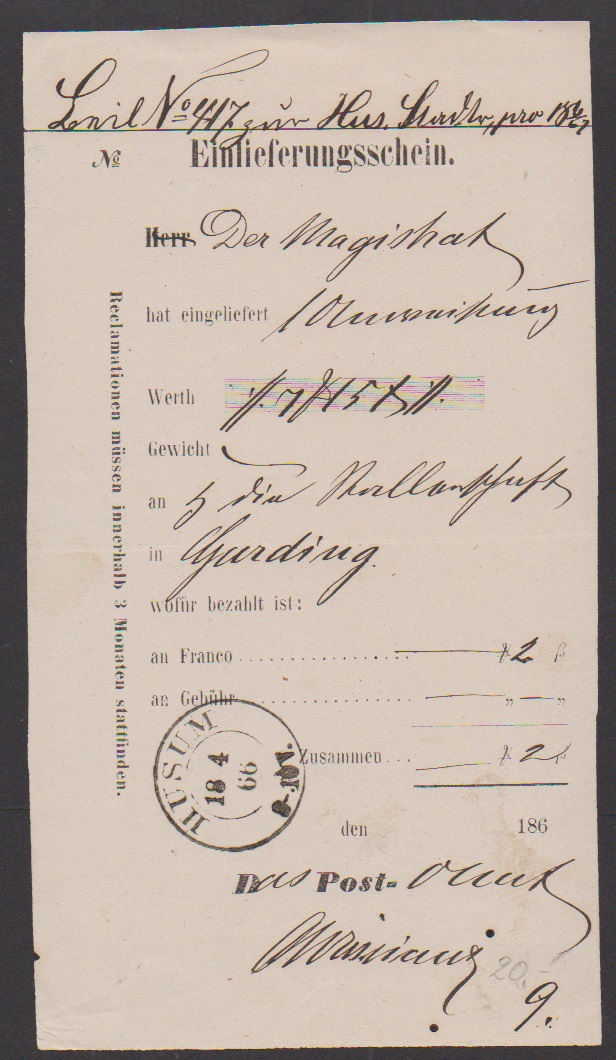 Beil № 447. zur Hus. Stadtr. pro 1866/67
№ Einlieferungsschein.
Herr Der Magistrat
hat eingeliefert 1 Anweisung
Werth
Gewicht
an die Stallerschaft
in Garding.
wofür bezahlt ist:
an Franco 2 β
an Gebühr „ „
Zusammen 2 β
HUSUM
18 4
66
8-10 V.
den 186
Das Post-Amt
20.-
9.
Reclamationen müssen innerhalb 3 Monaten stattfinden.